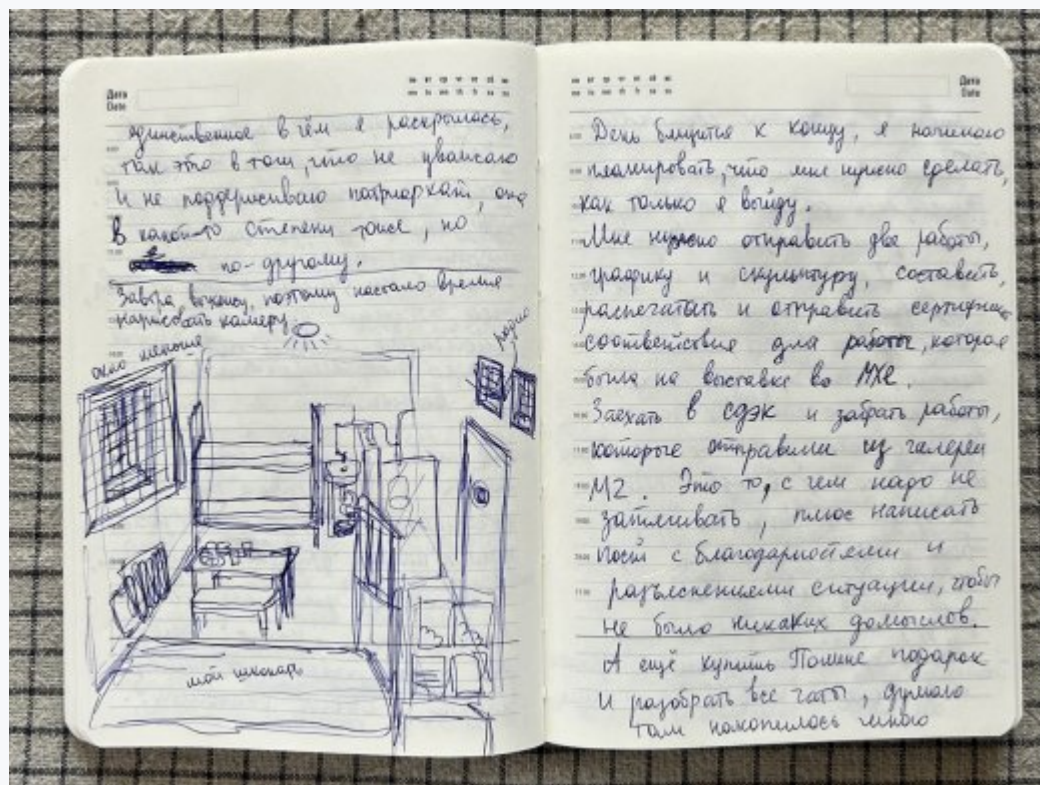 Дата
Date
единственное в чём я раскрылась,
так это в том, что не уважаю
и не поддерживаю патриархат, она
в какой-то степени тоже, но
по-другому.
Завтра выхожу, поэтому настало время
нарисовать камеру.
окно меньше
радио
мой шконарь
Дата
Date
День близится к концу, я начинаю
планировать, что мне нужно сделать,
как только я выйду.
Мне нужно отправить две работы,
графику и скульптуру, составить,
распечатать и отправить сертификат
соответствия для работы, которая
была на выставке во МХе.
Заехать в сдэк и забрать работы,
которые отправили из галереи
М2. Это то, с чем надо не
затягивать, плюс написать
пост с благодарностями и
разъяснениями ситуации, чтобы
не было никаких домыслов.
А ещё купить Полине подарок
и разобрать все чаты, думаю
там накопилось много